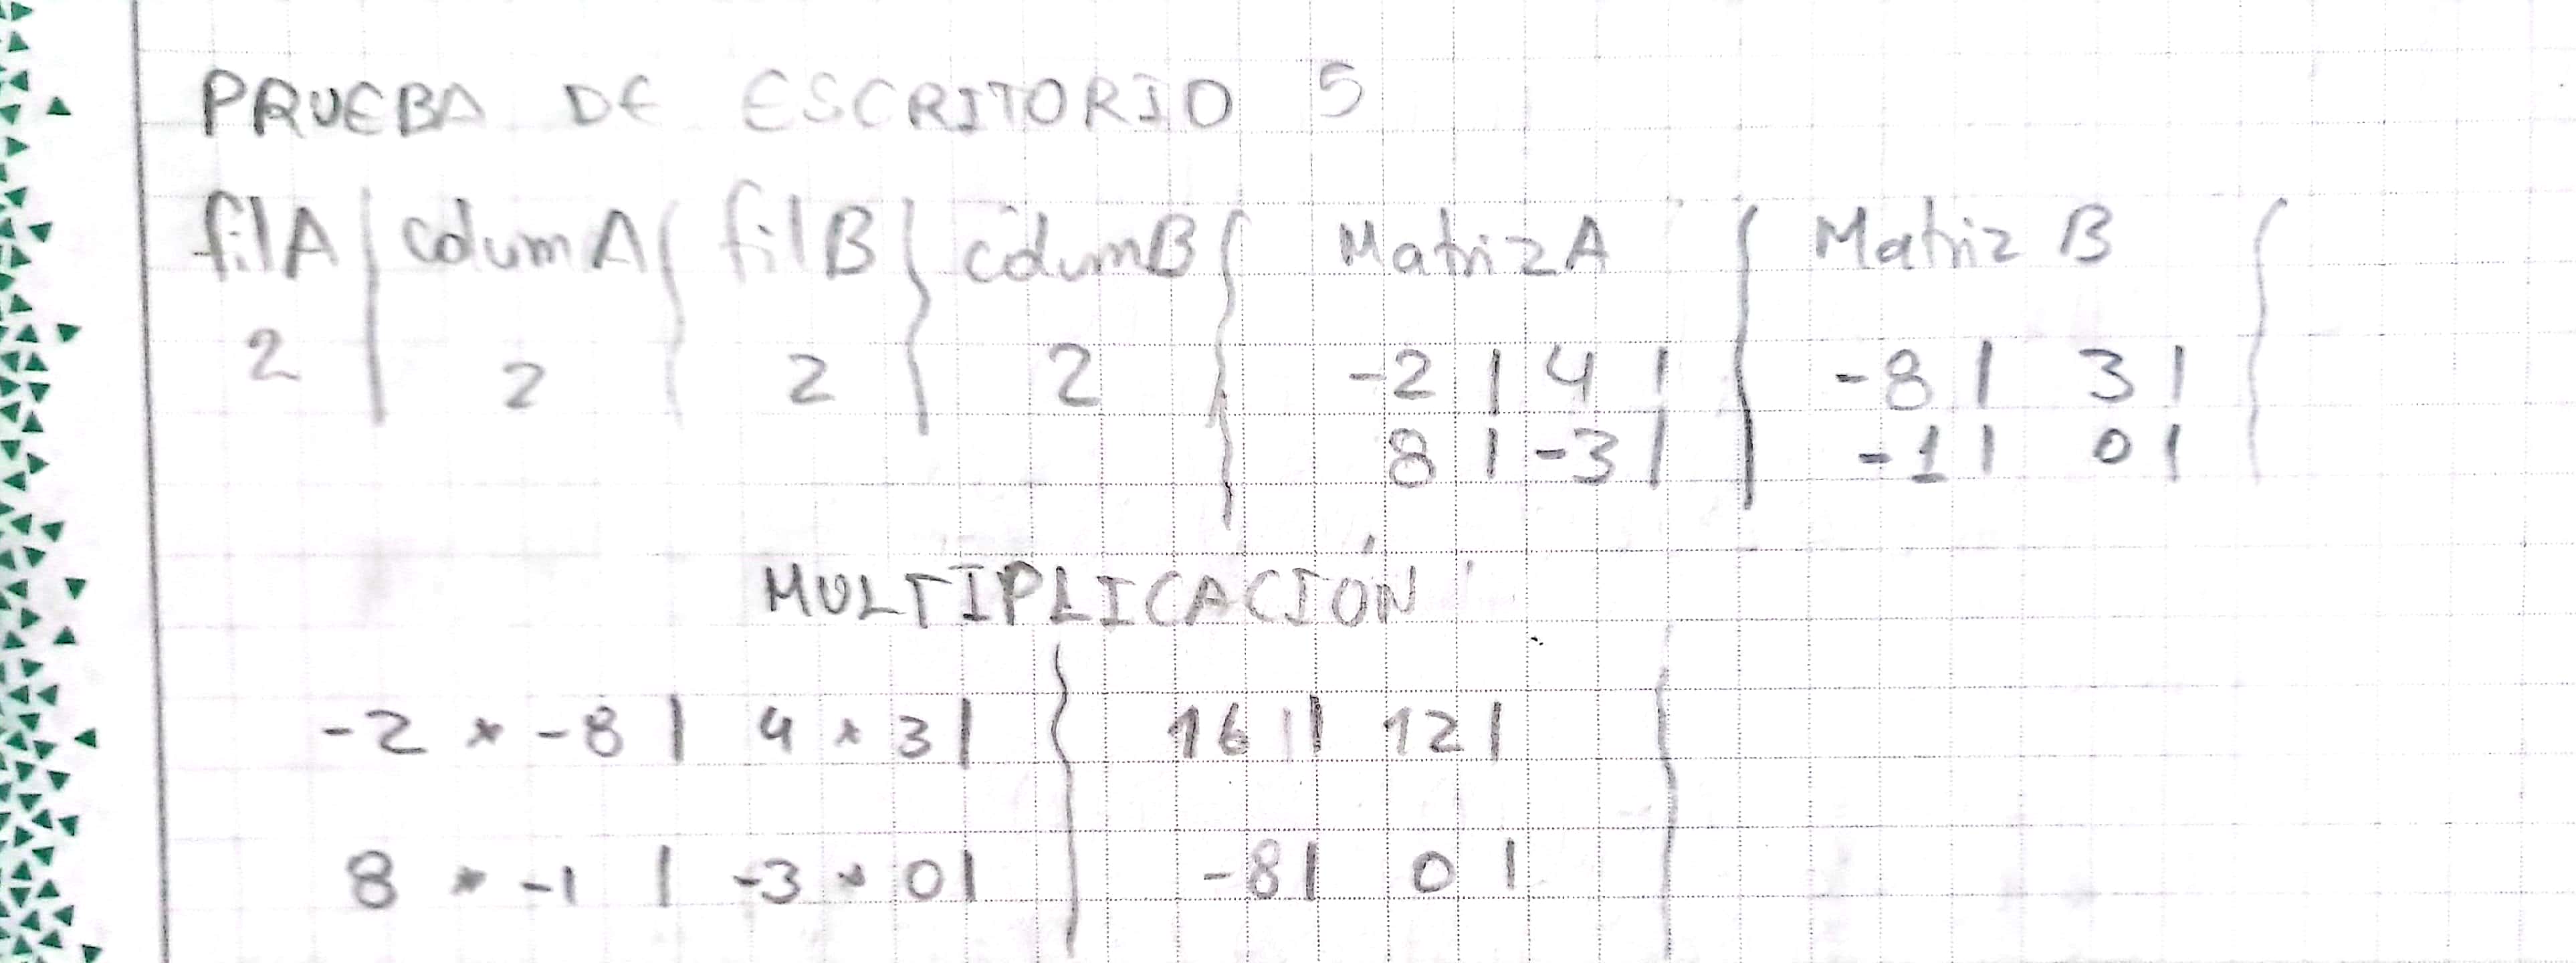 PRUEBA DE ESCRITORIO 5
filA | columA | filB | columB | Matriz A | Matriz B |
2 | 2 | 2 | 2 | -2 | 4 | | -8 | 3 | |
8 | -3 | | -1 | 0 |
MULTIPLICACIÓN
-2 * -8 | 4 * 3 | | 16 | | 12 | |
8 * -1 | -3 * 0 | | -8 | 0 | |